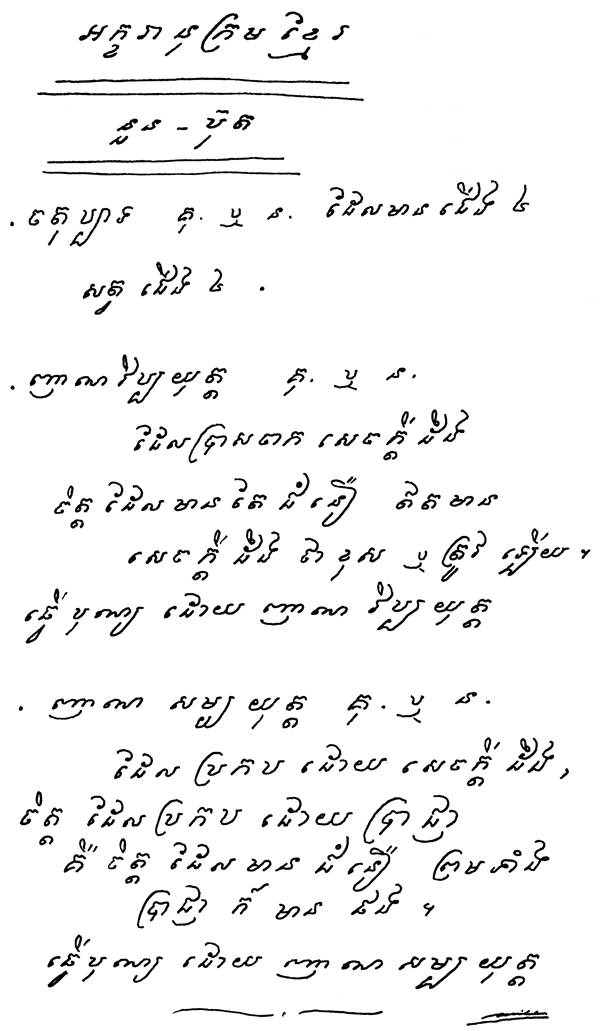 អក្ខរានុក្រម ខ្មែរ
នួន - ប៊ុត
. ចតុប្បាទ គុ. ឬ ន. ដែលមានជើង ៤
សត្វ ជើង ៤ .
. ញាណវិប្បយុត្ត គុ. ឬ ន.
ដែលប្រាសចាក សេចក្ដី ដឹង
ចិត្ត ដែល មាន តែ ជំនឿ ឥតមាន
សេចក្ដី ដឹង ថា ខុស ឬ ត្រូវ ឡើយ ។
ធ្វើ បុណ្យ ដោយ ញាណ វិប្បយុត្ត
. ញាណ សម្បយុត្ត គុ. ឬ ន.
ដែល ប្រកប ដោយ សេចក្ដី ដឹង,
ចិត្ត ដែល ប្រកប ដោយ ប្រាជ្ញា
គឺ ចិត្ត ដែល មាន ជំនឿ ព្រមទាំង
ប្រាជ្ញា ក៏ មាន ផង ។
ធ្វើ បុណ្យ ដោយ ញាណ សម្បយុត្ត